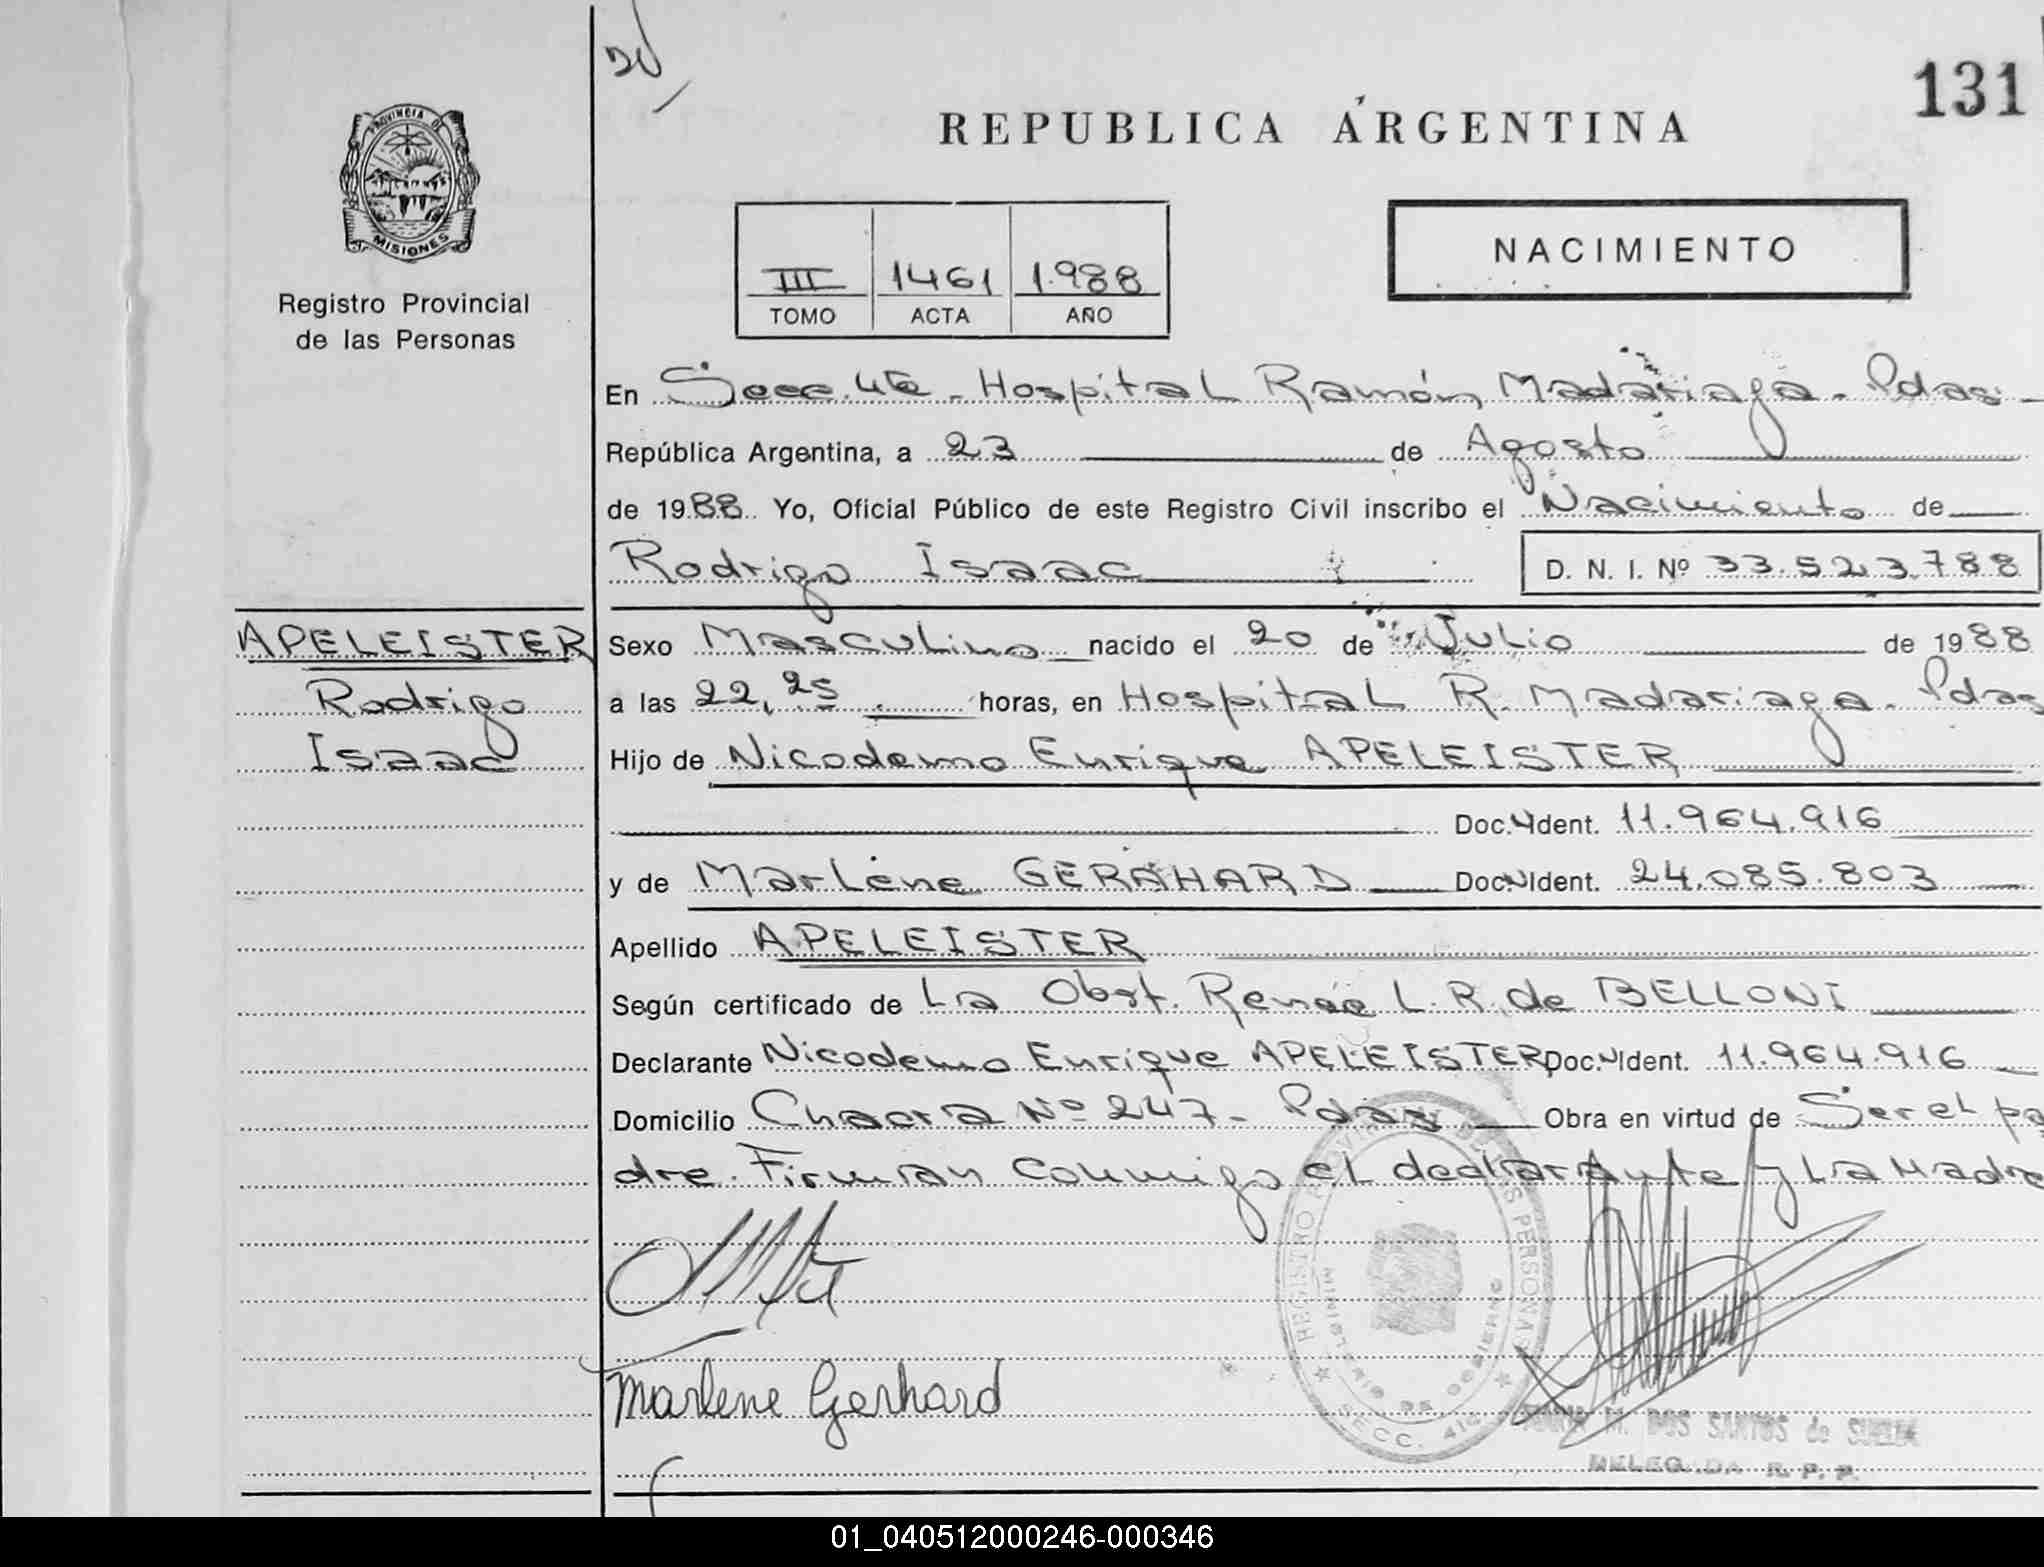 131
REPUBLICA ARGENTINA
PROVINCIA DE
MISIONES
Registro Provincial
de las Personas
NACIMIENTO
III 1461 1.988
TOMO ACTA AÑO
En Secc. 4ta - Hospital Ramón Madariaga. Pdas -
República Argentina, a 23 de Agosto
de 1988. Yo, Oficial Público de este Registro Civil inscribo el Nacimiento de
Rodrigo Isaac D. N. I. Nº 33.523.788
APELEISTER
Rodrigo
Isaac
Sexo Masculino nacido el 20 de Julio de 1988
a las 22,25 horas, en Hospital R. Madariaga. Pdas
Hijo de Nicodemo Enrique APELEISTER
Doc. Ident. 11.964.916
y de Marlene GERHARD Doc. Ident. 24.085.803
Apellido APELEISTER
Según certificado de La Obst. Renée L. R. de BELLONI
Declarante Nicodemo Enrique APELEISTER Doc. Ident. 11.964.916
Domicilio Chacra Nº 247 - Pdas Obra en virtud de Ser el pa
dre. Firman conmigo el declarante y la Madre
REGISTRO PROVINCIAL DE LAS PERSONAS
MINISTERIO DE GOBIERNO
SECC. 4ta
Marlene Gerhard
M. DOS SANTOS de
DELEGADA R. P. P.
01_040512000246-000346